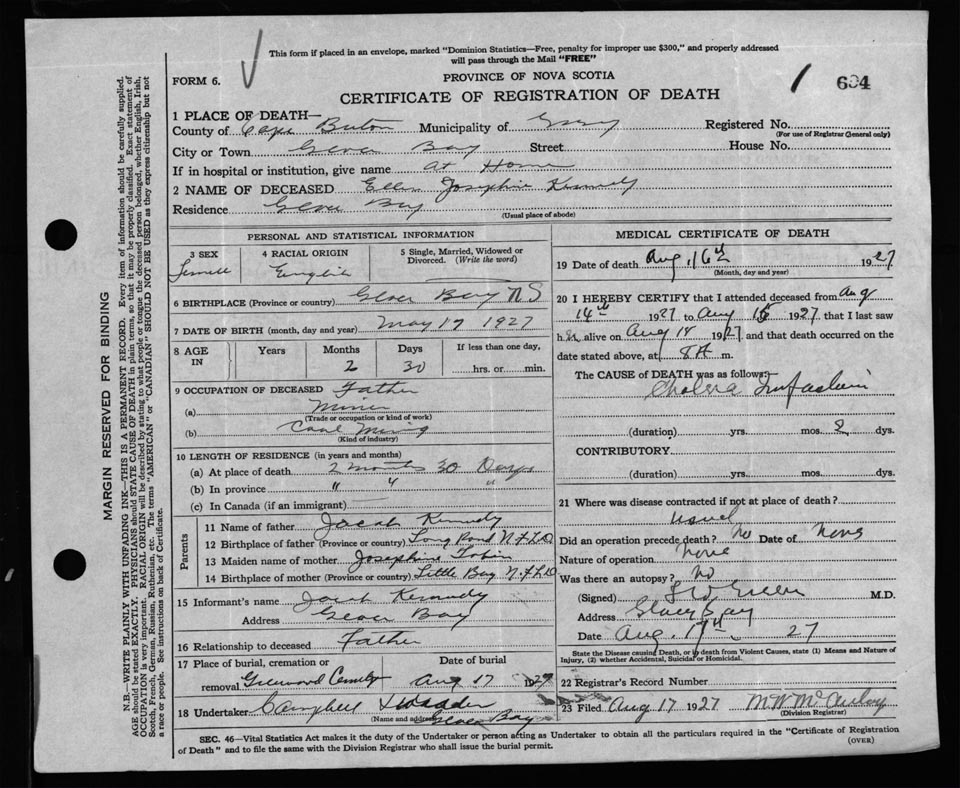 This form if placed in an envelope, marked "Dominion Statistics—Free, penalty for improper use $300," and properly addressed
will pass through the Mail "FREE"
FORM 6.
PROVINCE OF NOVA SCOTIA
694
CERTIFICATE OF REGISTRATION OF DEATH
1 PLACE OF DEATH—
County of Cape Breton Municipality of Registered No.
(For use of Registrar General only)
City or Town Glace Bay Street House No.
If in hospital or institution, give name at Home
2 NAME OF DECEASED Ellen Josephine Kennedy
Residence Glace Bay
(Usual place of abode)
PERSONAL AND STATISTICAL INFORMATION
3 SEX Female
4 RACIAL ORIGIN English
5 Single, Married, Widowed or Divorced. (Write the word)
6 BIRTHPLACE (Province or country) Glace Bay N S
7 DATE OF BIRTH (month, day and year) May 17 1927
8 AGE IN Years Months 2 Days 30 If less than one day, hrs. or min.
9 OCCUPATION OF DECEASED Father
(a) Miner
(Trade or occupation or kind of work)
(b) Coal Mining
(Kind of industry)
10 LENGTH OF RESIDENCE (in years and months)
(a) At place of death 2 months 30 Days
(b) In province " " "
(c) In Canada (if an immigrant)
Parents
11 Name of father Jacob Kennedy
12 Birthplace of father (Province or country) Long Pond NFLD
13 Maiden name of mother Josephine Tobin
14 Birthplace of mother (Province or country) Little Bay NFLD
15 Informant's name Jacob Kennedy
Address Glace Bay
16 Relationship to deceased Father
17 Place of burial, cremation or removal Greenwood Cemetery
Date of burial Aug 17 1927
18 Undertaker Campbell
(Name and address) Glace Bay
MEDICAL CERTIFICATE OF DEATH
19 Date of death Aug 16th 1927
(Month, day and year)
20 I HEREBY CERTIFY that I attended deceased from Aug
14th 1927 to Aug 15 1927 that I last saw
h alive on Aug 14 1927 and that death occurred on the
date stated above, at 8 m.
The CAUSE of DEATH was as follows:—
Cholera Infantum
(duration) yrs. mos. 2 dys.
CONTRIBUTORY
(duration) yrs. mos. dys.
21 Where was disease contracted if not at place of death?
Did an operation precede death? No Date of None
Nature of operation None
Was there an autopsy? No
(Signed) M.D.
Address Glace Bay
Date Aug. 17th 27
State the Disease causing Death, or in death from Violent Causes, state (1) Means and Nature of
Injury, (2) whether Accidental, Suicidal or Homicidal.
22 Registrar's Record Number
23 Filed Aug 17 1927
(Division Registrar)
SEC. 46—Vital Statistics Act makes it the duty of the Undertaker or person acting as Undertaker to obtain all the particulars required in the "Certificate of Registration
of Death" and to file the same with the Division Registrar who shall issue the burial permit.
(OVER)
MARGIN RESERVED FOR BINDING
N.B.—WRITE PLAINLY WITH UNFADING INK—THIS IS A PERMANENT RECORD. Every item of information should be carefully supplied.
AGE should be stated EXACTLY. PHYSICIANS should STATE CAUSE OF DEATH in plain terms, so that it may be properly classified. Exact statement of
OCCUPATION is very important. RACIAL ORIGIN will be described by stating to what people or tongue the deceased person belonged, whether English, Irish,
Scotch, French, German, Russian, Ruthenian, etc. The terms "AMERICAN" or "CANADIAN" SHOULD NOT BE USED as they express citizenship but not
a race or people. See instructions on back of Certificate.